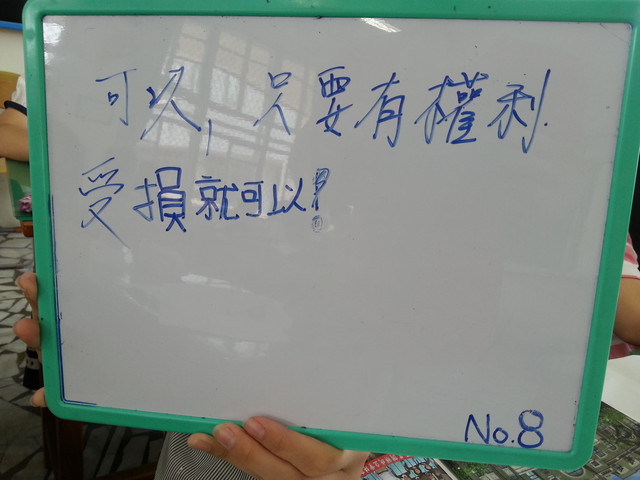 可以，只要有權利
受損就可以!
No.8